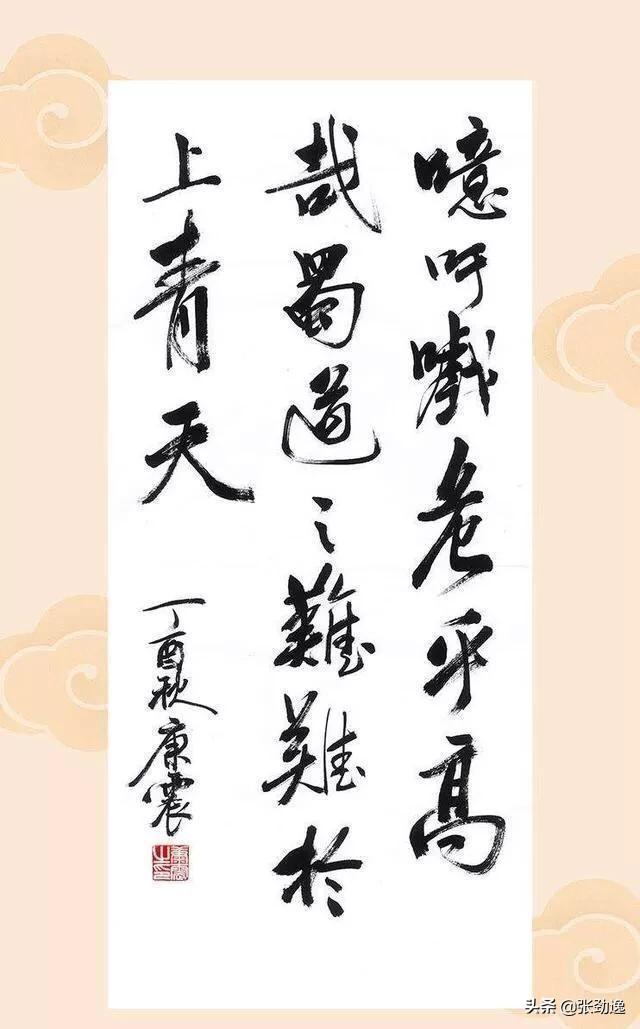 噫吁嚱危乎高
哉蜀道之難難於
上青天
丁酉秋康震
康震之印
头条 @张劲逸